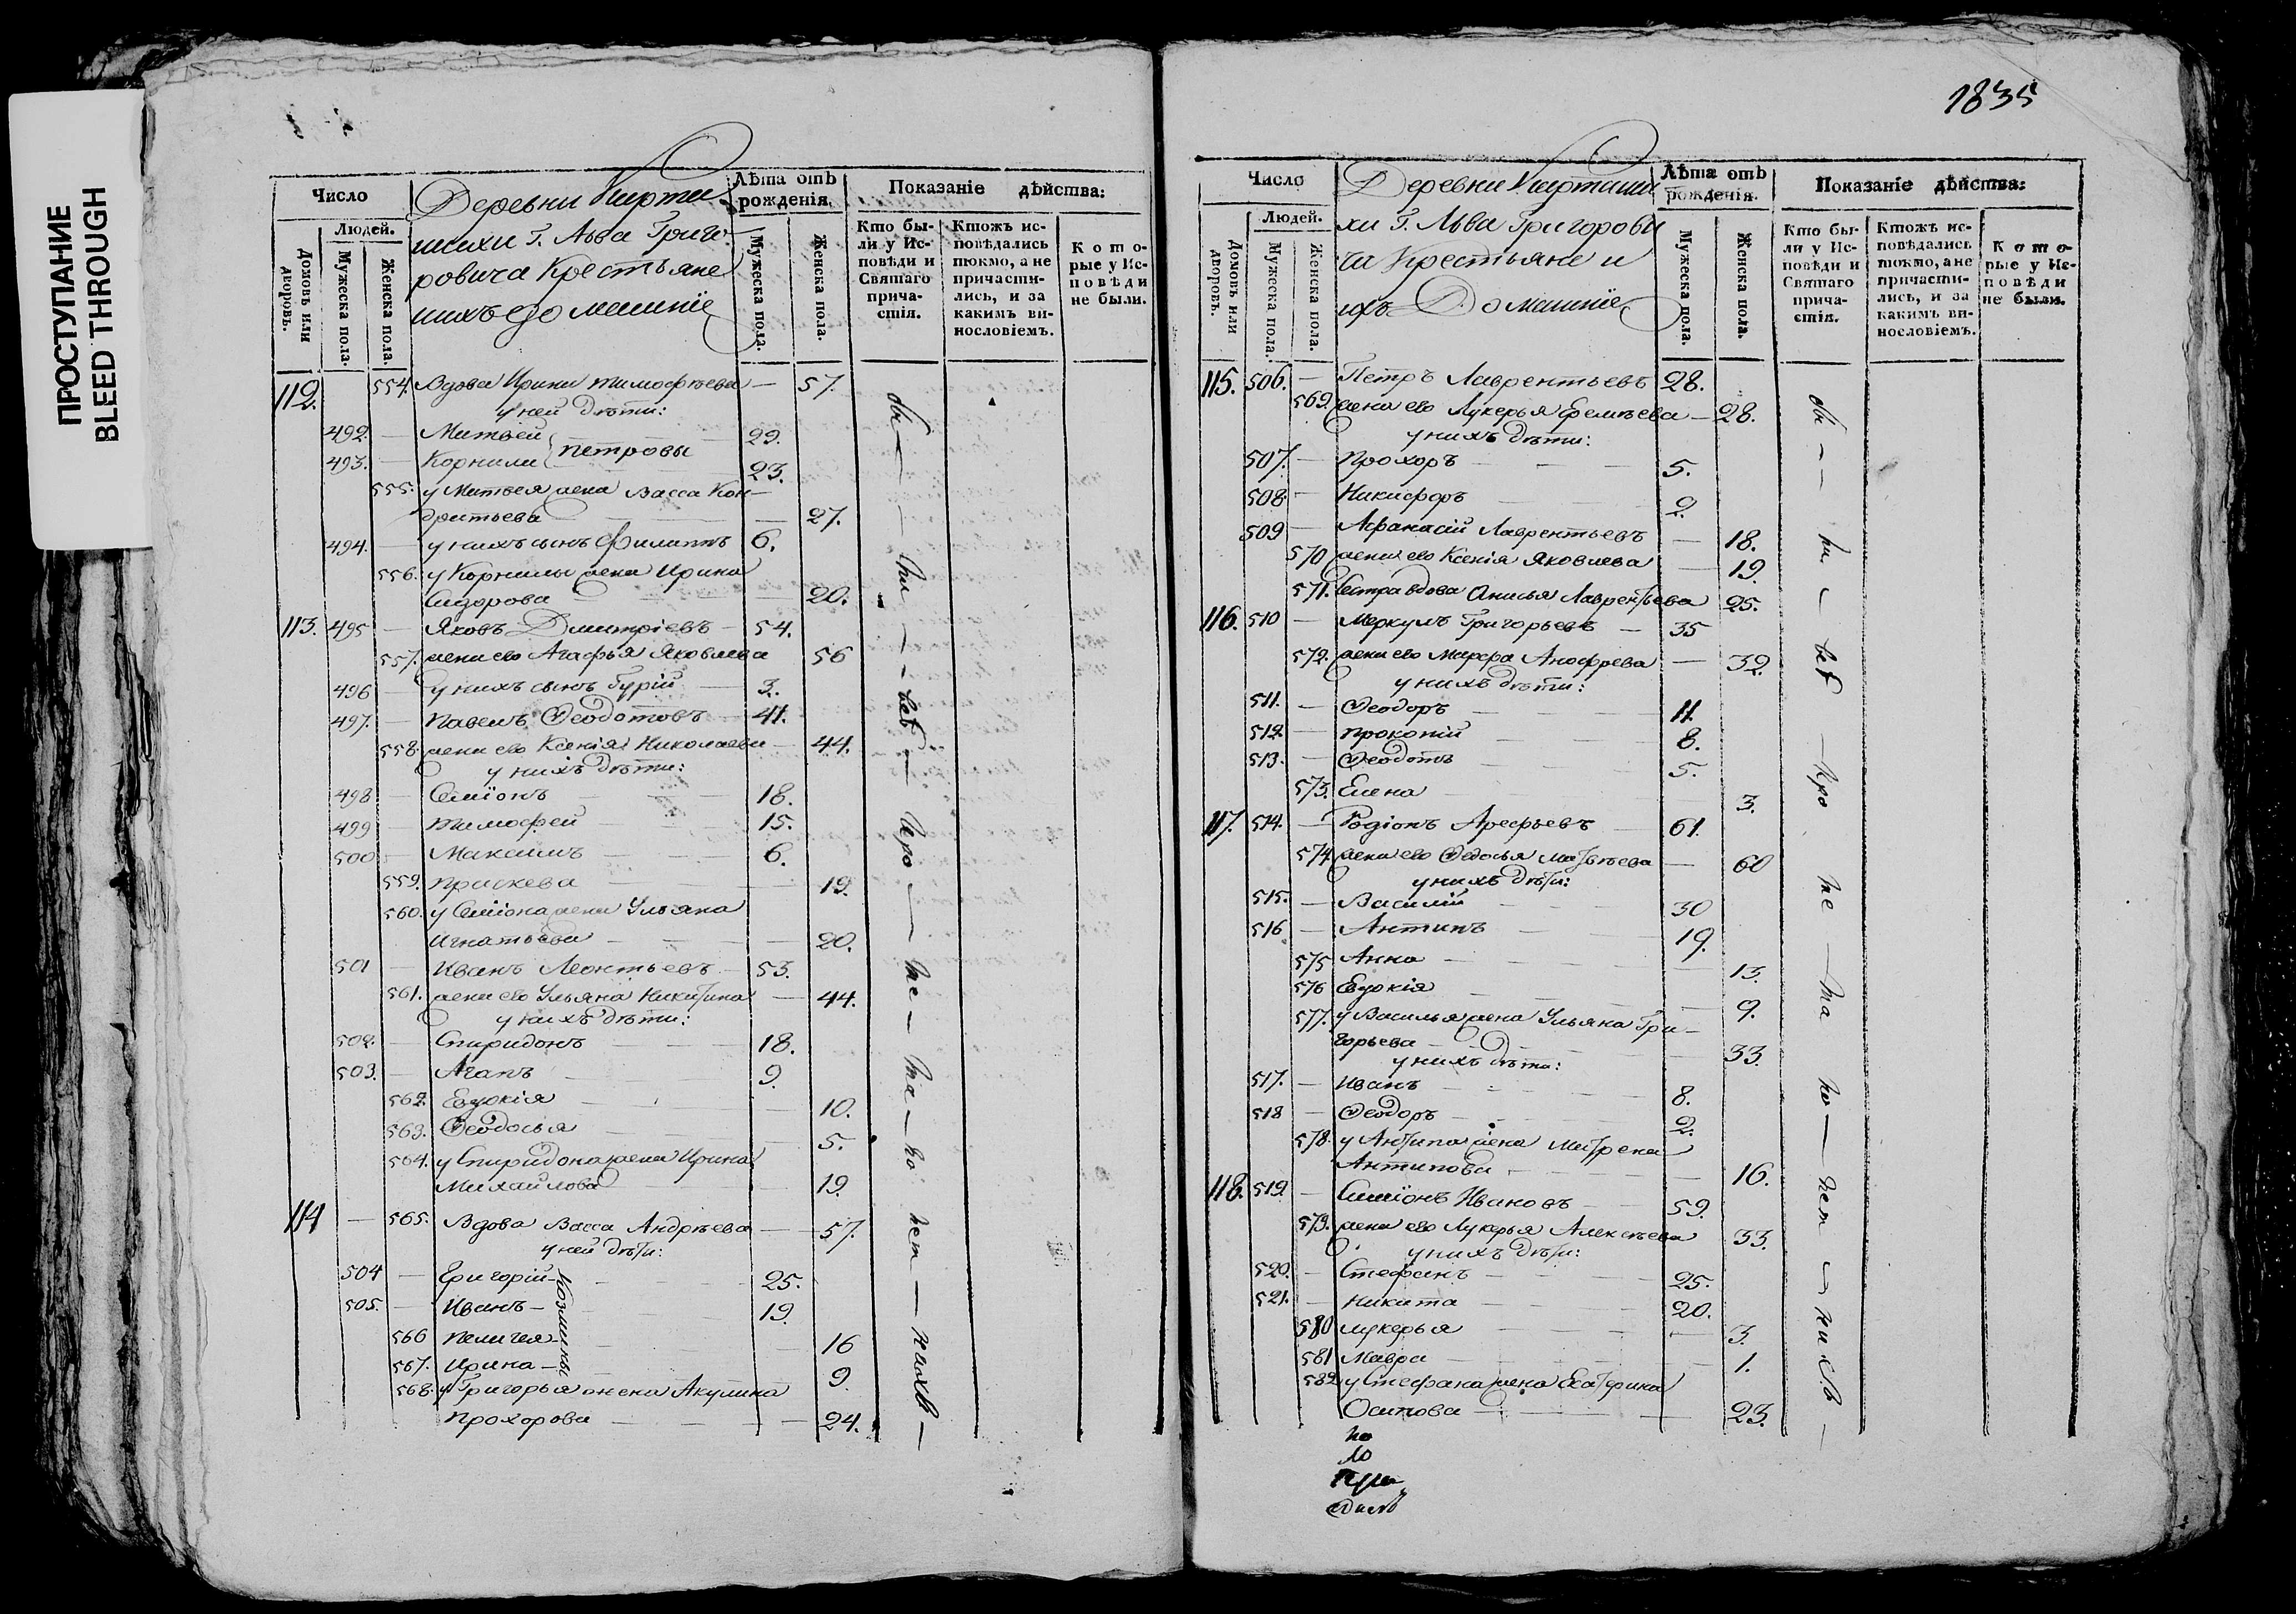 ПРОСТУПАНИЕ
BLEED THROUGH
Число
Людей.
Домовъ или дворовъ.
Мужеска пола.
Женска пола.
Деревни Кирти
шихи Г. Льва Григо
ровича Крестьяне
Лѣта отъ рожденія.
Мужеска пола.
Женска пола.
Показаніе дѣйства:
Кто были у Исповѣди и Святаго причастія.
Ктожъ исповѣдались токмо, а не причастились, и за какимъ винословіемъ.
Которые у Исповѣди не были.
112. 554. Вдова Ирина Тимофѣева — 57.
у ней дѣти:
492. — Матвей 29.
Петровы
493. — Корнили 23.
555. у Матвея жена Васса Кон-
дратьева — 27.
494. — у нихъ сынъ Филиппъ 6.
556. у Корнилы жена Ирина
Сидорова — 20.
113. 495 — Яковъ Дмитріевъ — 54.
557. жена его Агафья Яковлева 56
496 — у нихъ сынъ Гурій — 3.
497. — Павелъ Ѳеодотовъ — 41.
558. жена его Ксенія Николаева — 44.
у нихъ дѣти:
498 — Симіонъ — 18.
499 — Тимофей — 15.
500 — Максимъ — 6.
559. Праскева — 19.
560. у Симіона жена Ульяна
Игнатьева — 20.
501 — Иванъ Леонтьевъ — 53.
561. жена его Ульяна Никитина — 44.
у нихъ дѣти:
502. — Спиридонъ — 18.
503. — Агапъ — 9.
562. Евдокія — 10.
563. Ѳеодосья — 5.
564. у Спиридона жена Ирина
Михайлова — 19.
114 — 565. Вдова Васса Андрѣева — 57.
у ней дѣти:
504 — Григорій — 25.
505. — Иванъ — 19.
Козмины
566 Пелагея — 16
567. Ирина — 9.
568. у Григорья жена Акулина
Прохорова — 24.
1835
Число
Людей.
Домовъ или дворовъ.
Мужеска пола.
Женска пола.
Деревни Киртиши
хи Г. Льва Григорови
ча Крестьяне и
ихъ Домашніе
Лѣта отъ рожденія.
Мужеска пола.
Женска пола.
Показаніе дѣйства:
Кто были у Исповѣди и Святаго причастія.
Ктожъ исповѣдались токмо, а не причастились, и за какимъ винословіемъ.
Которые у Исповѣди не были.
115. 506. — Петръ Лаврентьевъ 28.
569. жена его Лукерья Еремѣева — 28.
у нихъ дѣти:
507. — Прохоръ — 5.
508 — Никифоръ — 2.
509 — Афанасій Лаврентьевъ — 18.
570 жена его Ксенія Яковлева — 19.
571. Сестра вдова Анисья Лаврентьева 25.
116. 510 — Меркулъ Григорьевъ — 35
572. жена его Марфа Анофрева — 32.
у нихъ дѣти:
511. — Ѳеодоръ — 11.
512. — Прокопій — 8.
513. — Ѳеодотъ — 5.
573. Елена — 3.
117. 514. — Родіонъ Арефьевъ — 61.
574 жена его Ѳедосья Матвѣева — 60
у нихъ дѣти:
515. — Василій — 30
516 — Антипъ — 19.
575 Анна — 13.
576 Евдокія — 9.
577. у Василья жена Ульяна Гри-
горьева — 33.
у нихъ дѣти:
517. — Иванъ — 8.
518 — Ѳеодоръ — 2.
578. у Антипа жена Матрена
Антипова — 16.
118. 519. — Симіонъ Ивановъ — 59.
579. жена его Лукерья Алексѣева 33.
у нихъ дѣти:
520. — Стефанъ — 25.
521. — Никита — 20.
580 Лукерья — 3.
581 Мавра — 1.
582 у Стефана жена Екатерина
Осипова — 23.